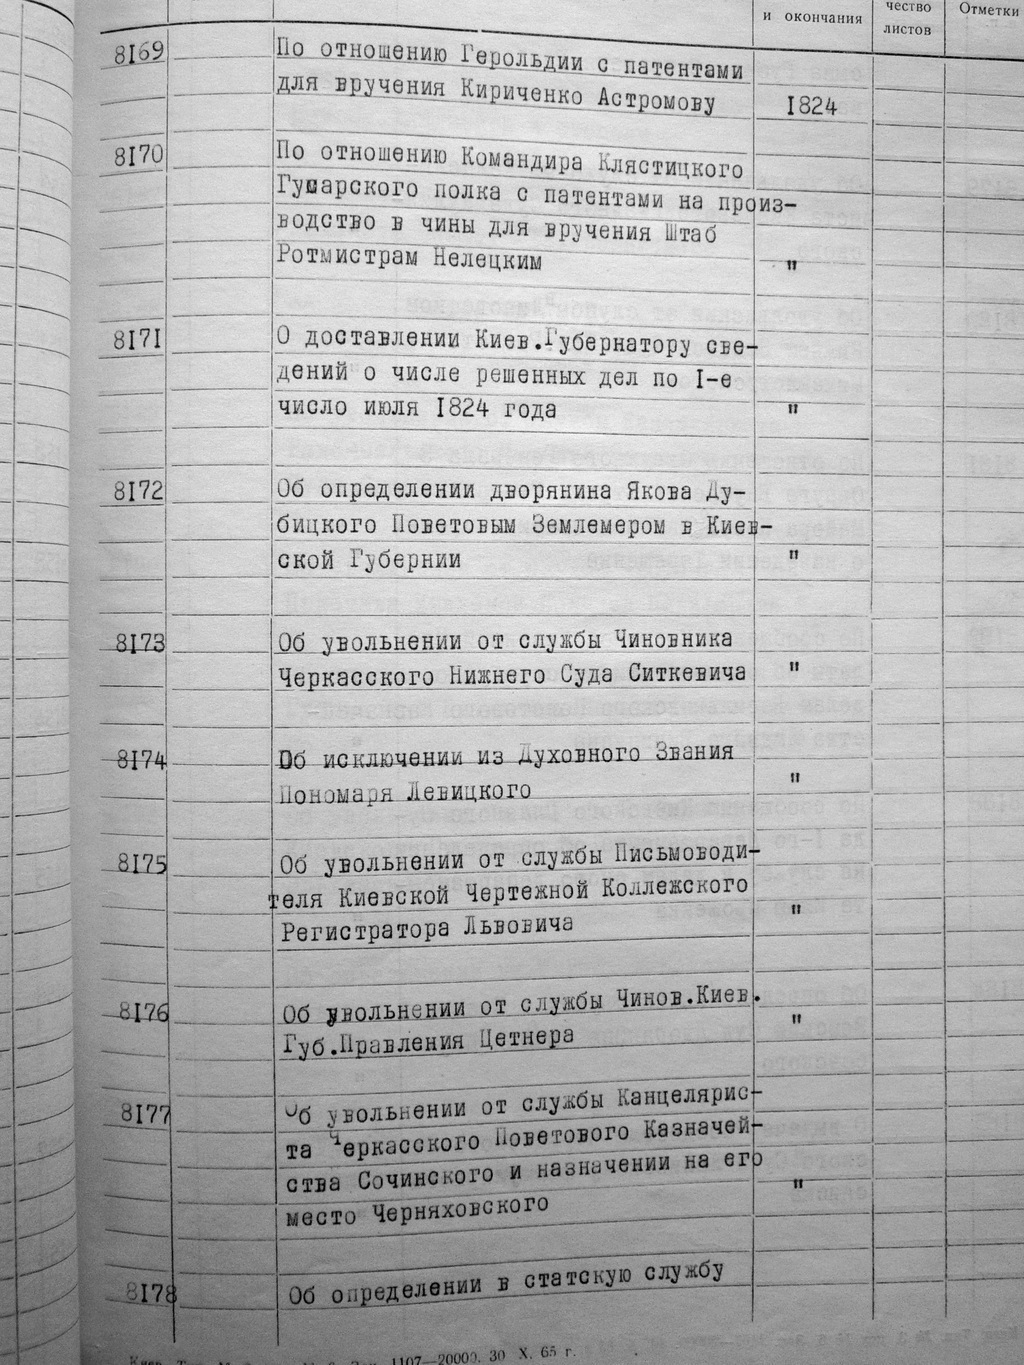 и окончания
чество
листов
Отметки
8169
По отношению Герольдии с патентами
для вручения Кириченко Астромову
1824
8170
По отношению Командира Клястицкого
Гусарского полка с патентами на произ-
водство в чины для вручения Штаб
Ротмистрам Нелецким
"
8171
О доставлении Киев.Губернатору све-
дений о числе решенных дел по I-е
число июля 1824 года
"
8172
Об определении дворянина Якова Ду-
бицкого Поветовым Землемером в Киев-
ской Губернии
"
8173
Об увольнении от службы Чиновника
Черкасского Нижнего Суда Ситкевича
"
8174
Об исключении из Духовного Звания
Пономаря Левицкого
"
8175
Об увольнении от службы Письмоводи-
теля Киевской Чертежной Коллежского
Регистратора Львовича
"
8176
Об увольнении от службы Чинов.Киев.
Губ.Правления Цетнера
"
8177
Об увольнении от службы Канцелярис-
та Черкасского Поветового Казначей-
ства Сочинского и назначении на его
место Черняховского
"
8178
Об определении в статскую службу
1107—20000. 30 X. 65 г.